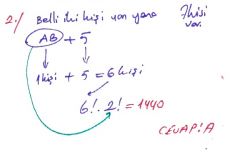 2./ Belli iki kişi yan yana 7 kişi var.
AB + 5
1 kişi + 5 = 6 kişi
6! . 2! = 1440
CEVAP: A